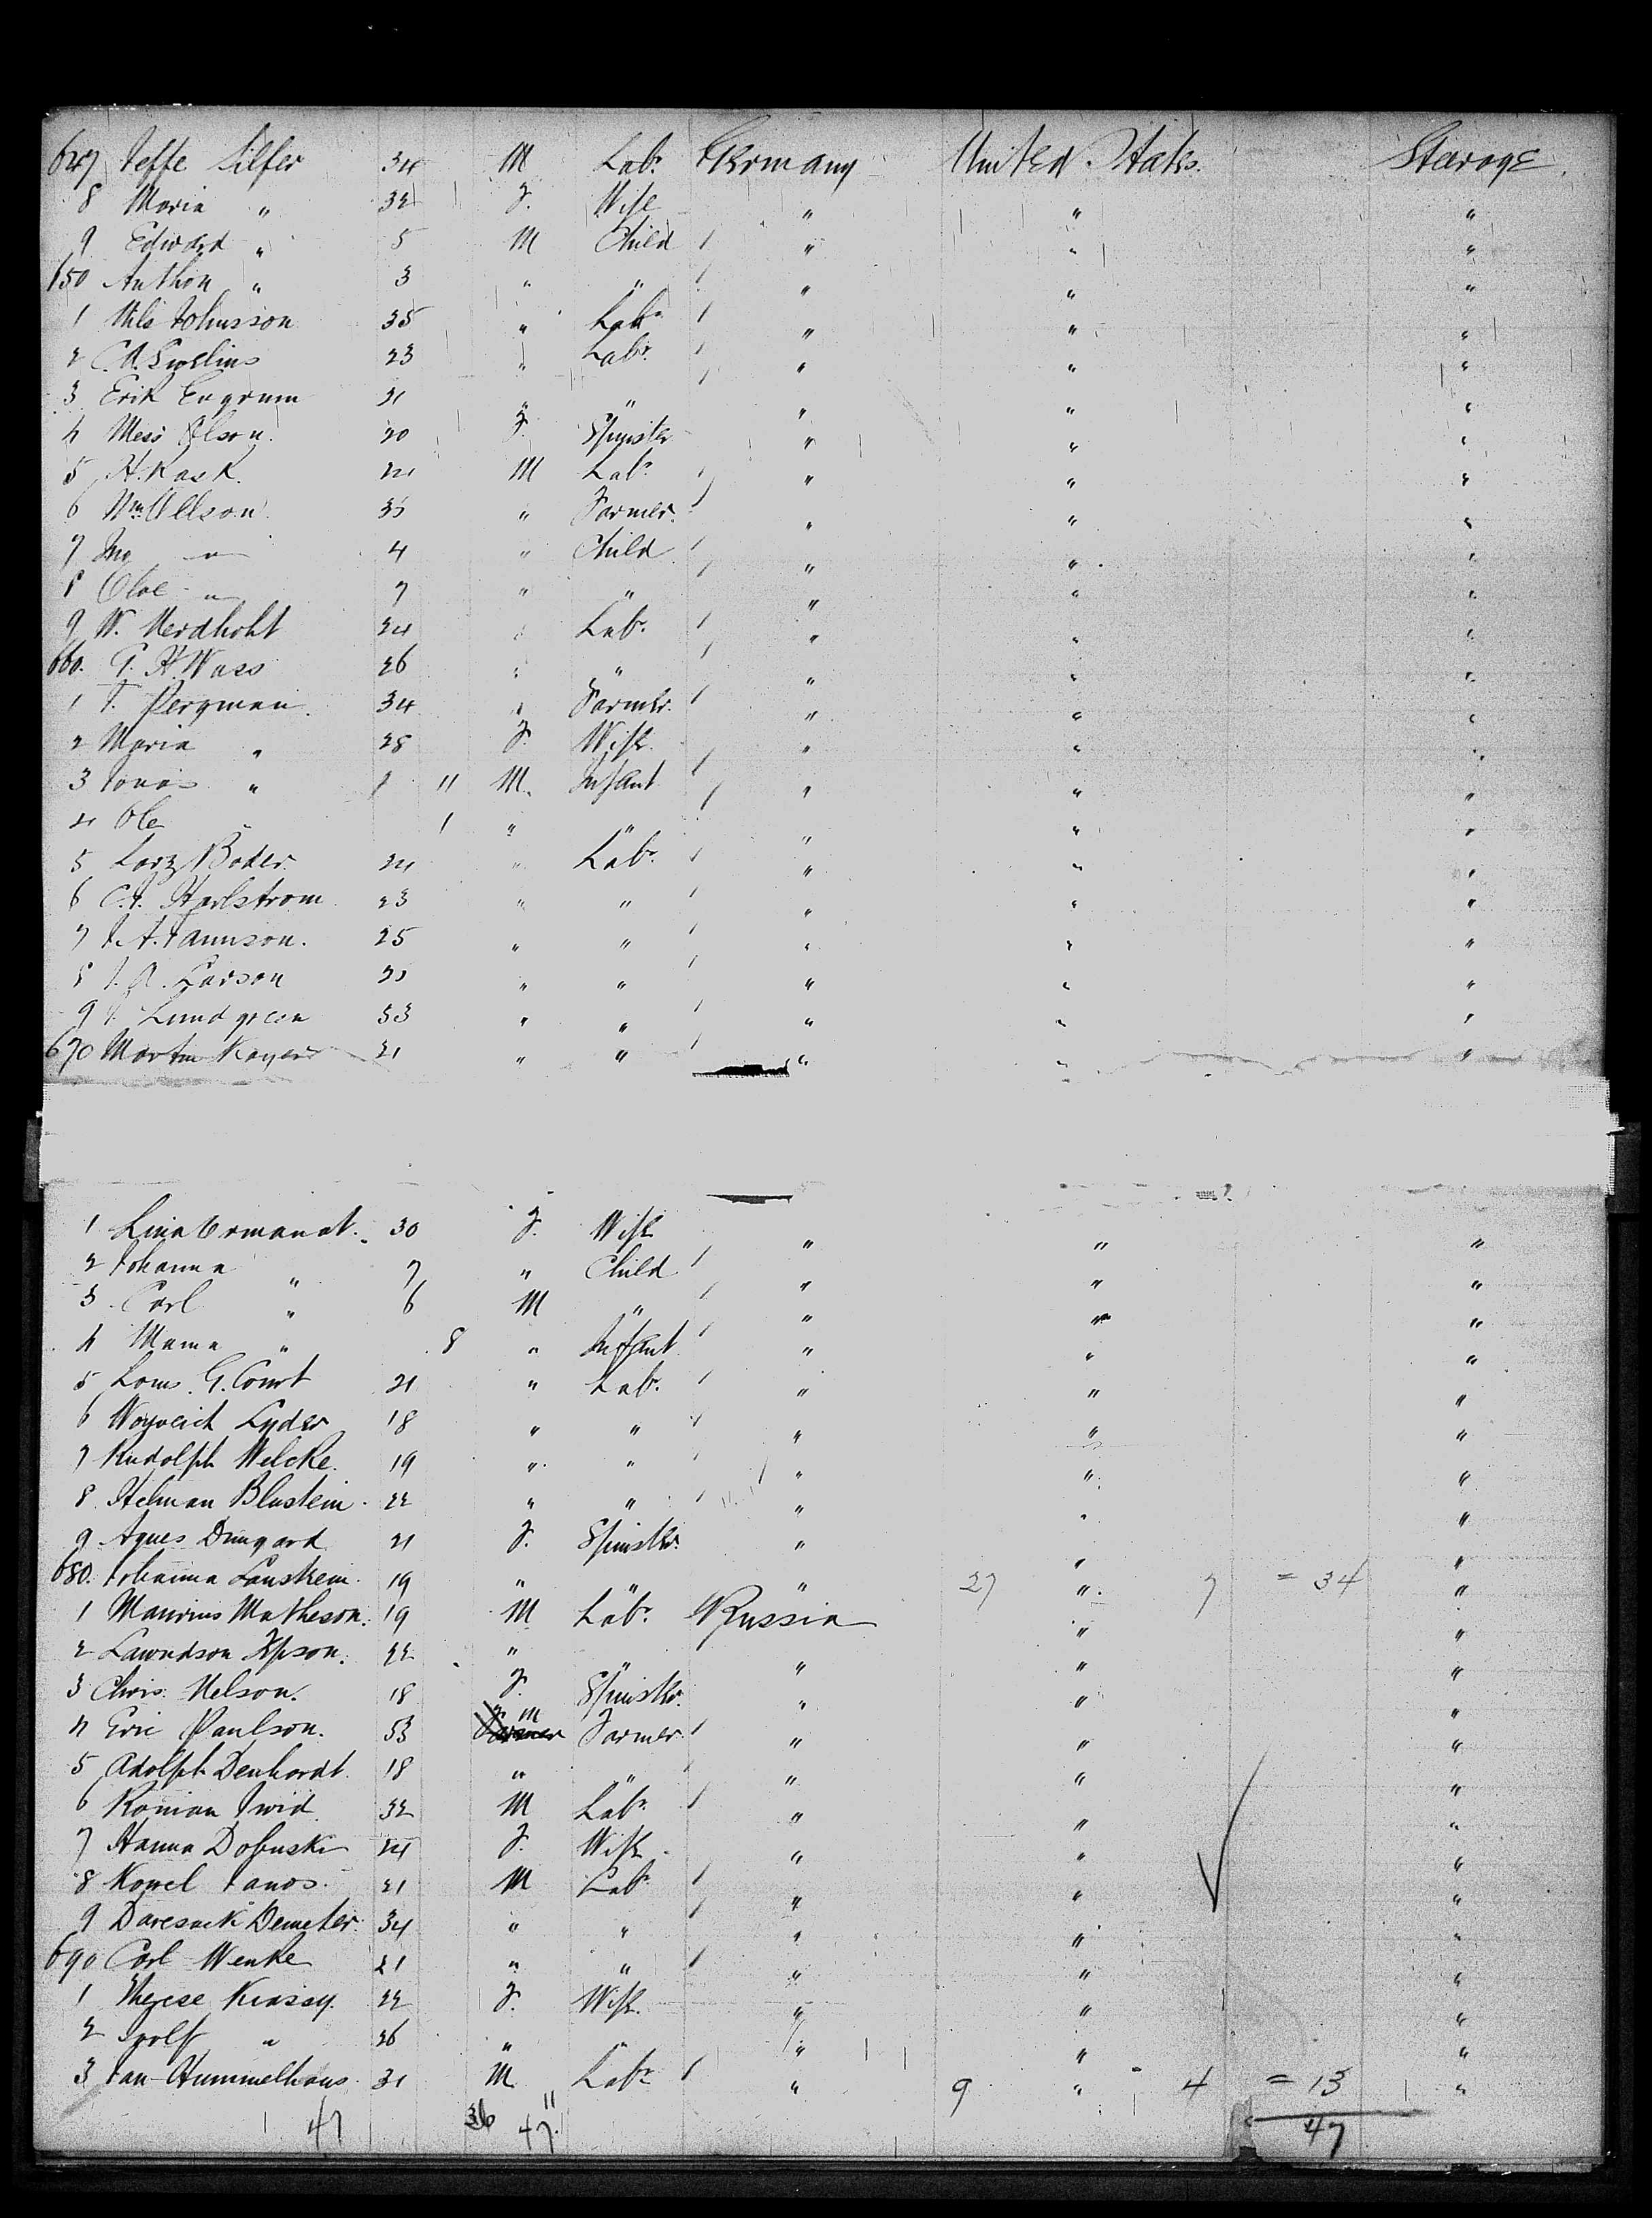 647 Jeffe Silfer 34 M Labr. Germany United States. Steerage.
8 Maria " 32 F. Wife " " "
9 Edward " 5 M Child / " " "
650 Anthon " 3 " " / " " "
1 Nils Johnsson 35 " Labr / " " "
2 C.A. 23 " Labr. / " " "
3 Erik Engrum 21 " " / " " "
4 Olson. 20 F. Spinster " " "
5 H. Rask. 24 M Labr / " " "
6 Wm. Ollson 35 " Farmer. / " " "
7 " 4 " Child / " " "
8 Oloe " 7 " " / " " "
9 W. Nerdhoht 24 " Labr. / " " "
660. G. H. Wass 26 " " / " " "
1 J. Pergman. 34 " Farmer. / " " "
2 Maria " 28 F. Wife " " "
3 Jonas " 11 M. Infant / " " "
4 Ole " 1 " " / " " "
5 Larz Boder. 24 " Labr. / " " "
6 C.J. Harlstrom 23 " " / " " "
7 J.A. Jannson. 25 " " / " " "
8 J.A. Larson 25 " " / " " "
9 J. Lundgreen 33 " " / " " "
670 Martin Kayers 21 " " / " " "
1 Lina Ermanat. 30 F. Wife " " "
2 Johanna " 7 " Child / " " "
3 Carl " 6 M " / " " "
4 Mama " 8 " Infant / " " "
5 Louis G. Court 21 " Labr. / " " "
6 Woyveich Lyder 18 " " / " " "
7 Rudolph Welcke. 19 " " / " " "
8 Helman Blustein. 22 " " / " " "
9 Agnes Dungard 21 F. Spinster. " " "
680. Johanna Lanskein. 19 " " 27 " 7 = 34 "
1 Maurius Matheson. 19 M Labr. Russia " "
2 Lawndson Ipson. 22 " " " " "
3 Chris. Nelson. 18 F. Spinster. " " "
4 Eric Paulson. 53 M Farmer / " " "
5 Adolph Denhardt. 18 " " / " " "
6 Roman Iwid 32 M Labr. / " " "
7 Hanna Dobuski 24 F. Wife. " " "
8 Kowel Janos. 21 M Labr / " " "
9 Daresack Demeter. 34 " " / " " "
690 Carl Wenke 21 " " / " " "
1 Therese Kinsey. 22 F. Wife. " " "
2 " 26 " " / " " "
3 Jan Hummelhaus. 31 M Labr / " 9 " 4 = 13 "
47 36 11 47. 47